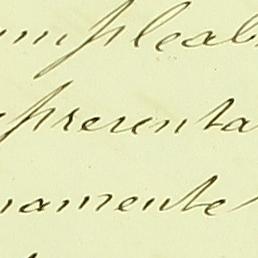 mpleab
presenta
namente